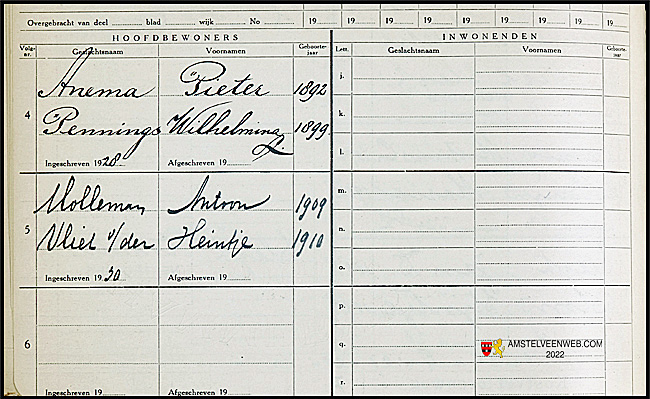 Overgebracht van deel blad wijk No 19 19 19 19 19 19 19 19 19
HOOFDBEWONERS INWONENDEN
Volg-nr. Geslachtsnaam Voornamen Geboorte-jaar Lett. Geslachtsnaam Voornamen Geboorte-jaar
4
Anema Pieter 1892
Pennings Wilhelmina 1899
Ingeschreven 1928 Afgeschreven 19
5
Molleman Antoon 1909
Vliet v/der Heintje 1910
Ingeschreven 1930 Afgeschreven 19
6
Ingeschreven 19 Afgeschreven 19
j.
k.
l.
m.
n.
o.
p.
q.
r.
AMSTELVEENWEB.COM
2022